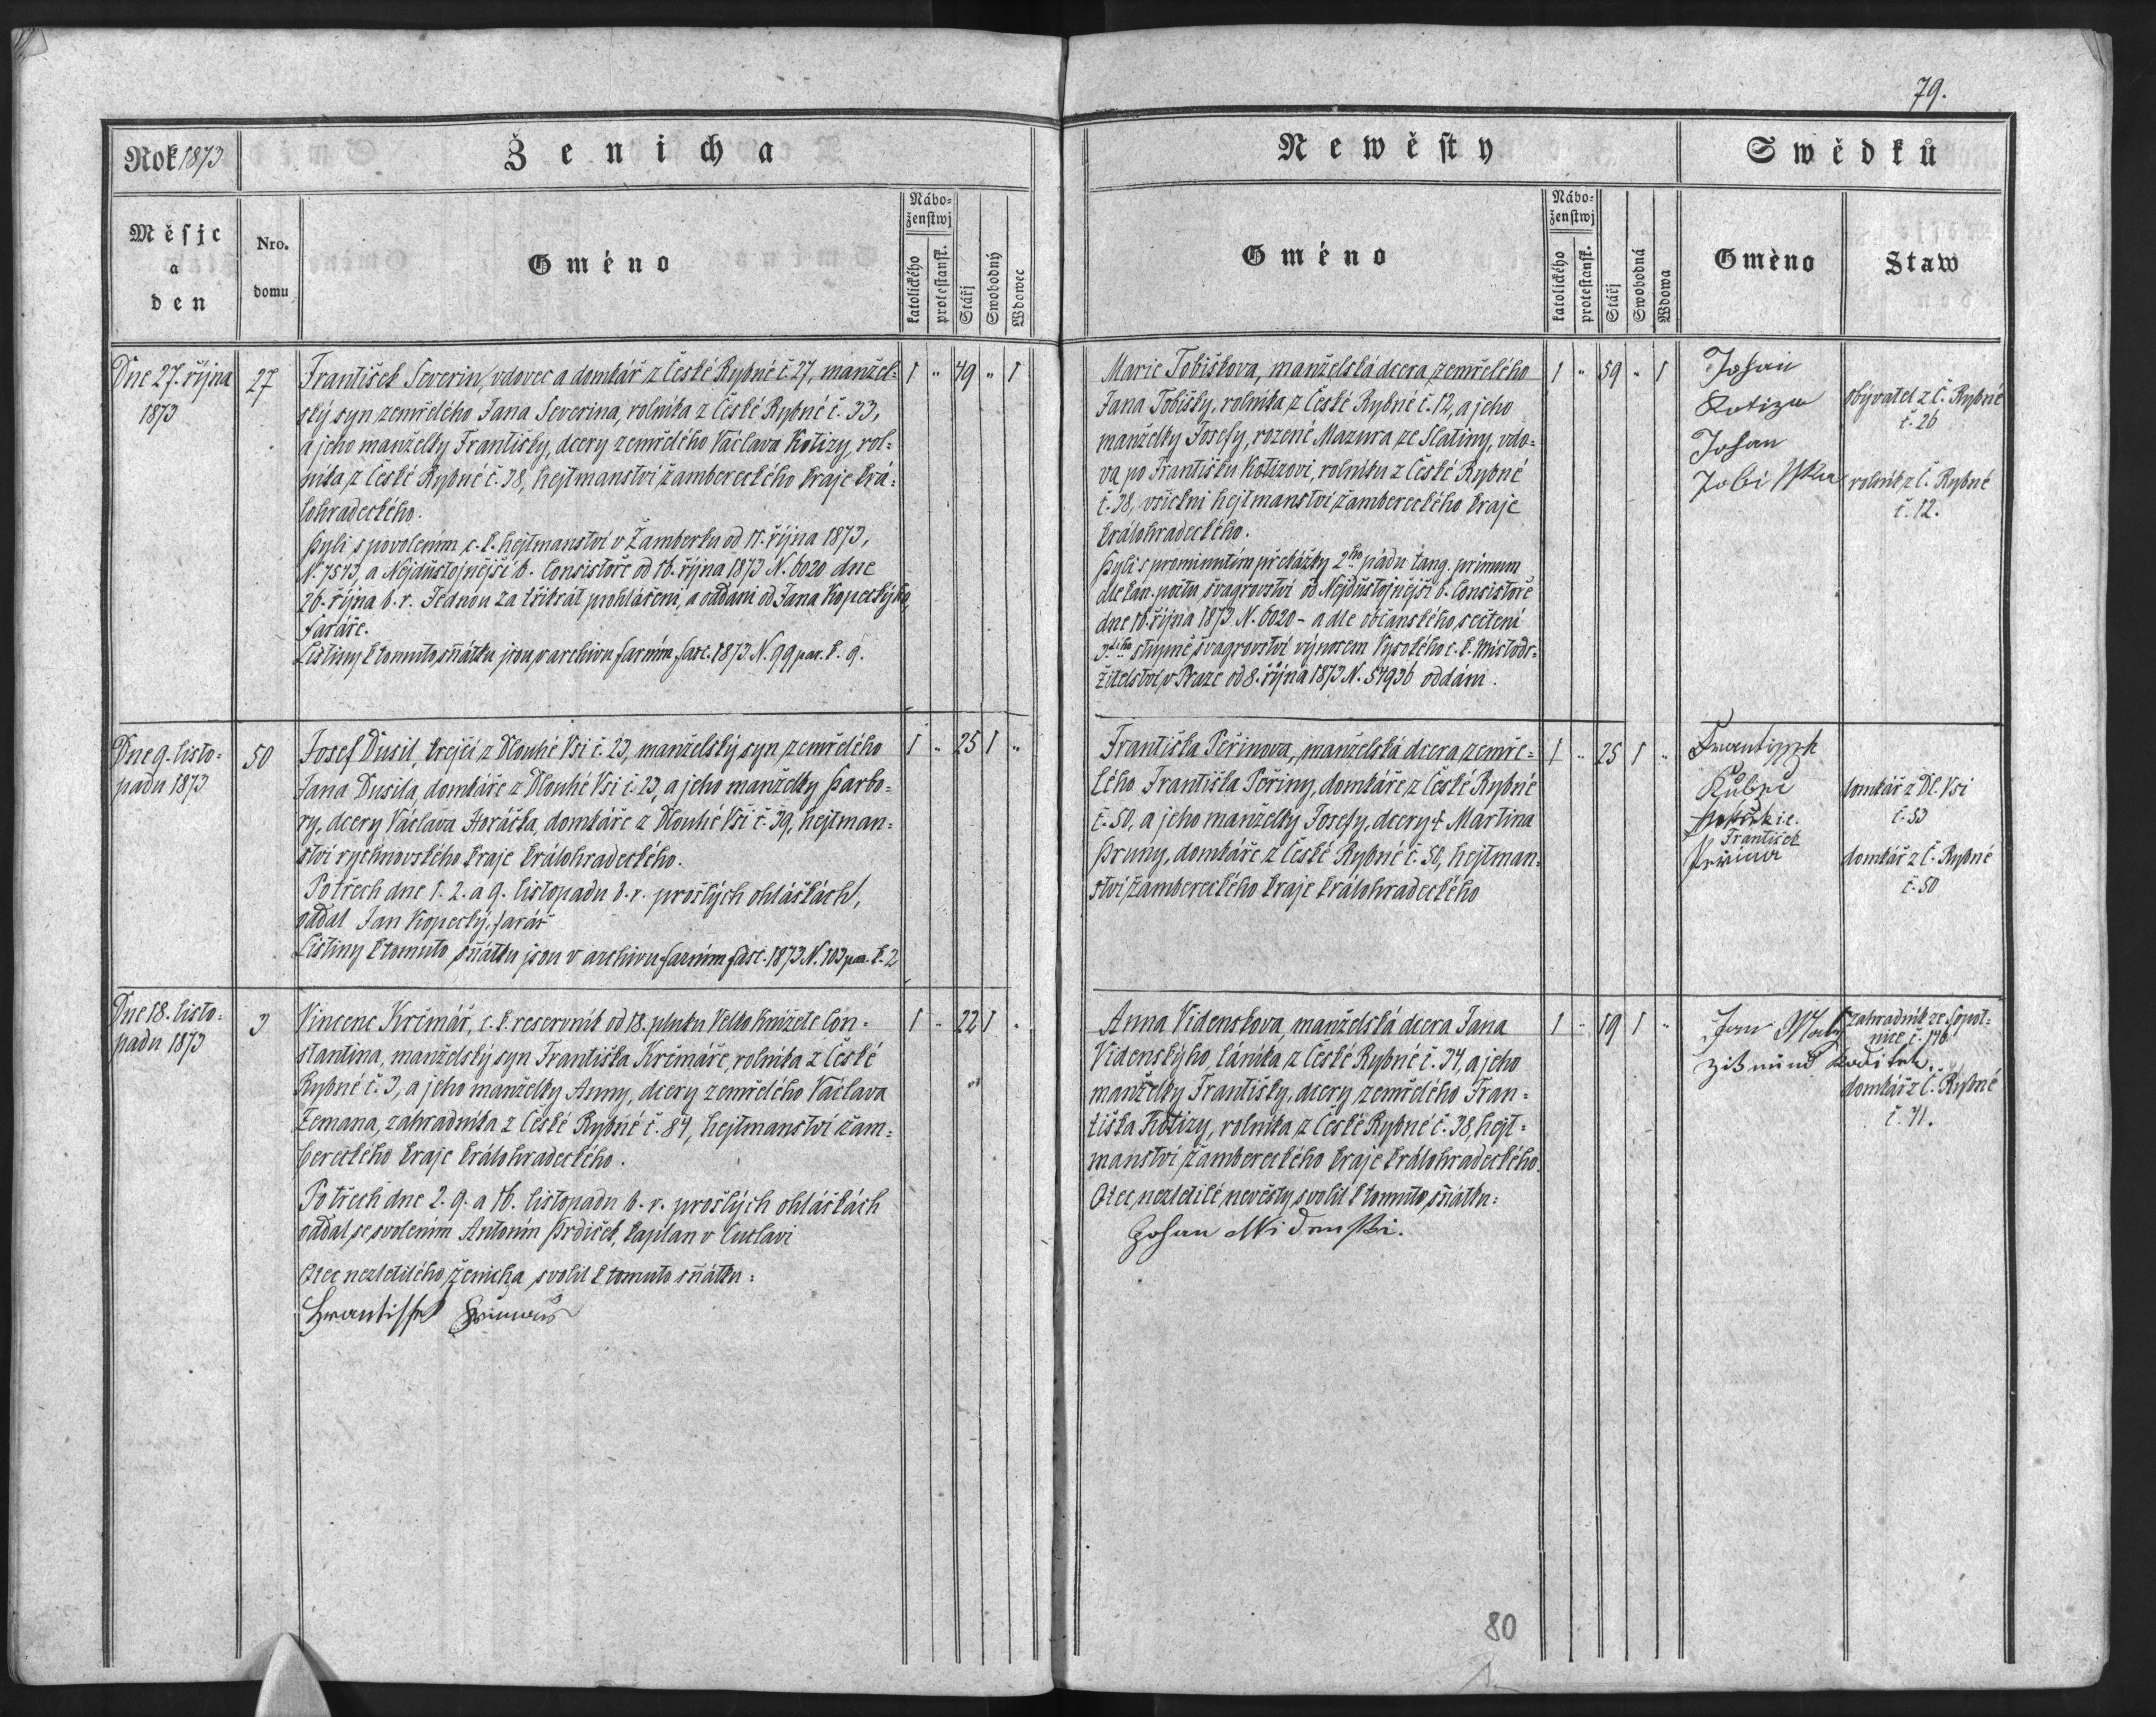 79.
Rok 1873
Ženicha
Newěsty
Swědků
Měsjc
a
den
Nro.
domu
Gméno
Nábo=
ženstwj
katolického
protestansk.
Stářj
Swobodný
Wdowec
Gméno
Nábo=
ženstwj
katolického
protestansk.
Stářj
Swobodná
Wdowa
Gméno
Staw
Dne 27. října
1873
27
František Severin, vdovec a domkář z České Rybné č. 27, manžel=
ský syn zemřelého Jana Severina, rolníka z České Rybné č. 33,
a jeho manželky Františky, dcery zemřelého Václava Kotizy, rol=
níka z České Rybné č. 38, hejtmanství žambereckého kraje krá=
lohradeckého.
Byli s povolením c. k. hejtmanství v Žamberku od 11. října 1873,
N. 7543, a Nejdůstojnější b. Consistoře od 16. října 1873 N. 6020 dne
26. října b. r. Jednou za třikrát prohlášeni, a oddáni od Jana Kopeckýho,
faráře.
Listiny k tomuto sňátku jsou v archivu farním fasc. 1873 N. 99 par. k. 9.
1 " 49 " 1
Marie Tobiškova, manželská dcera zemřelého
Jana Tobišky, rolníka z České Rybné č. 12, a jeho
manželky Josefy, rozené Mazura ze Slatiny, vdo=
va po Františku Kotizovi, rolníku z České Rybné
č. 38, všickni hejtmanství žambereckého kraje
králohradeckého.
Byli s prominutím překážky 2ho pádu tang. primum
dle kan. počtu švagrovství od Nejdůstojnější b. Consistoře
dne 16. října 1873 N. 6020 - a dle občanského sečtení
3tího stupně švagrovství výnosem Vysokého c. k. Místodr=
žitelství v Praze od 8. října 1873 N. 54936 oddáni.
1 " 59 " 1
Johan
Kotiza
obyvatel z Č. Rybné
č. 26
Johan
Tobisska
rolník z Č. Rybné
č. 12.
Dne 9. listo=
padu 1873
50
Josef Dusil, krejčí z Dlouhé Vsi č. 23, manželský syn zemřelého
Jana Dusila, domkáře z Dlouhé Vsi č. 23, a jeho manželky Barbo=
ry, dcery Václava Horáčka, domkáře z Dlouhé Vsi č. 39, hejtman=
ství rychnovského kraje králohradeckého.
Po třech dne 1. 2. a 9. listopadu b. r. prošlých ohláškách,
oddal Jan Kopecký, farář
Listiny k tomuto sňátku jsou v archivu farním fasc. 1873 N. 103 par. k. 2
1 " 25 1 "
Františka Peřinova, manželská dcera zemře=
lého Františka Peřiny, domkáře z České Rybné
č. 50, a jeho manželky Josefy, dcery † Martina
Pruny, domkáře z České Rybné č. 50, hejtman=
ství žambereckého kraje králohradeckého
1 " 25 1 "
Frantizek
domkář z Dl. Vsi
č. 53
František
Peřina
domkář z Č. Rybné
č. 50
Dne 18. listo=
padu 1873
3
Vincenc Krčmář, c. k. reservník od 18. pluku Velko Knížete Con=
stantina, manželský syn Františka Krčmáře, rolníka z České
Rybné č. 3, a jeho manželky Anny, dcery zemřelého Václava
Zemana, zahradníka z České Rybné č. 84, hejtmanství žam=
bereckého kraje králohradeckého.
Po třech dne 2. 9. a 16. listopadu b. r. prošlých ohláškách
oddal se svolením Antonín Brdíček, kaplan v Cutlavi
Otec nezletilého ženicha svolil k tomuto sňátku:
Frantissek Krcmař
1 " 22 1 "
Anna Videnskova, manželská dcera Jana
Videnskýho, láníka z České Rybné č. 34, a jeho
manželky Františky, dcery zemřelého Fran=
tiška Kotizy, rolníka z České Rybné č. 38, hejt=
manství žambereckého kraje králohradeckého.
Otec nezletilé nevěsty svolil k tomuto sňátku:
Johan Widenski.
1 " 19 1 "
Jan
zahradník ze Sopot=
nice č. 176
domkář z Č. Rybné
č. 71.
80